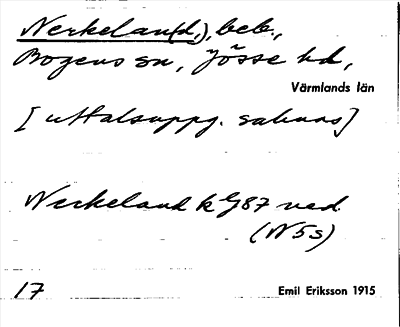 Nerkelan(d,), beb.,
Bogens sn, Jösse hd,
Värmlands län
[uttalsuppg. saknas]
Nerkeland k G 87 ned.
(N5s)
17 Emil Eriksson 1915